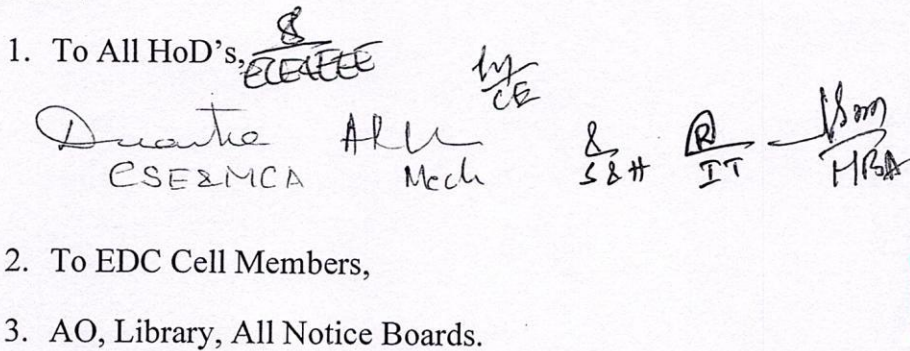 1. To All HoD's, ECE&EEE
CE
CSE&MCA Mech S&H IT MBA
2. To EDC Cell Members,
3. AO, Library, All Notice Boards.